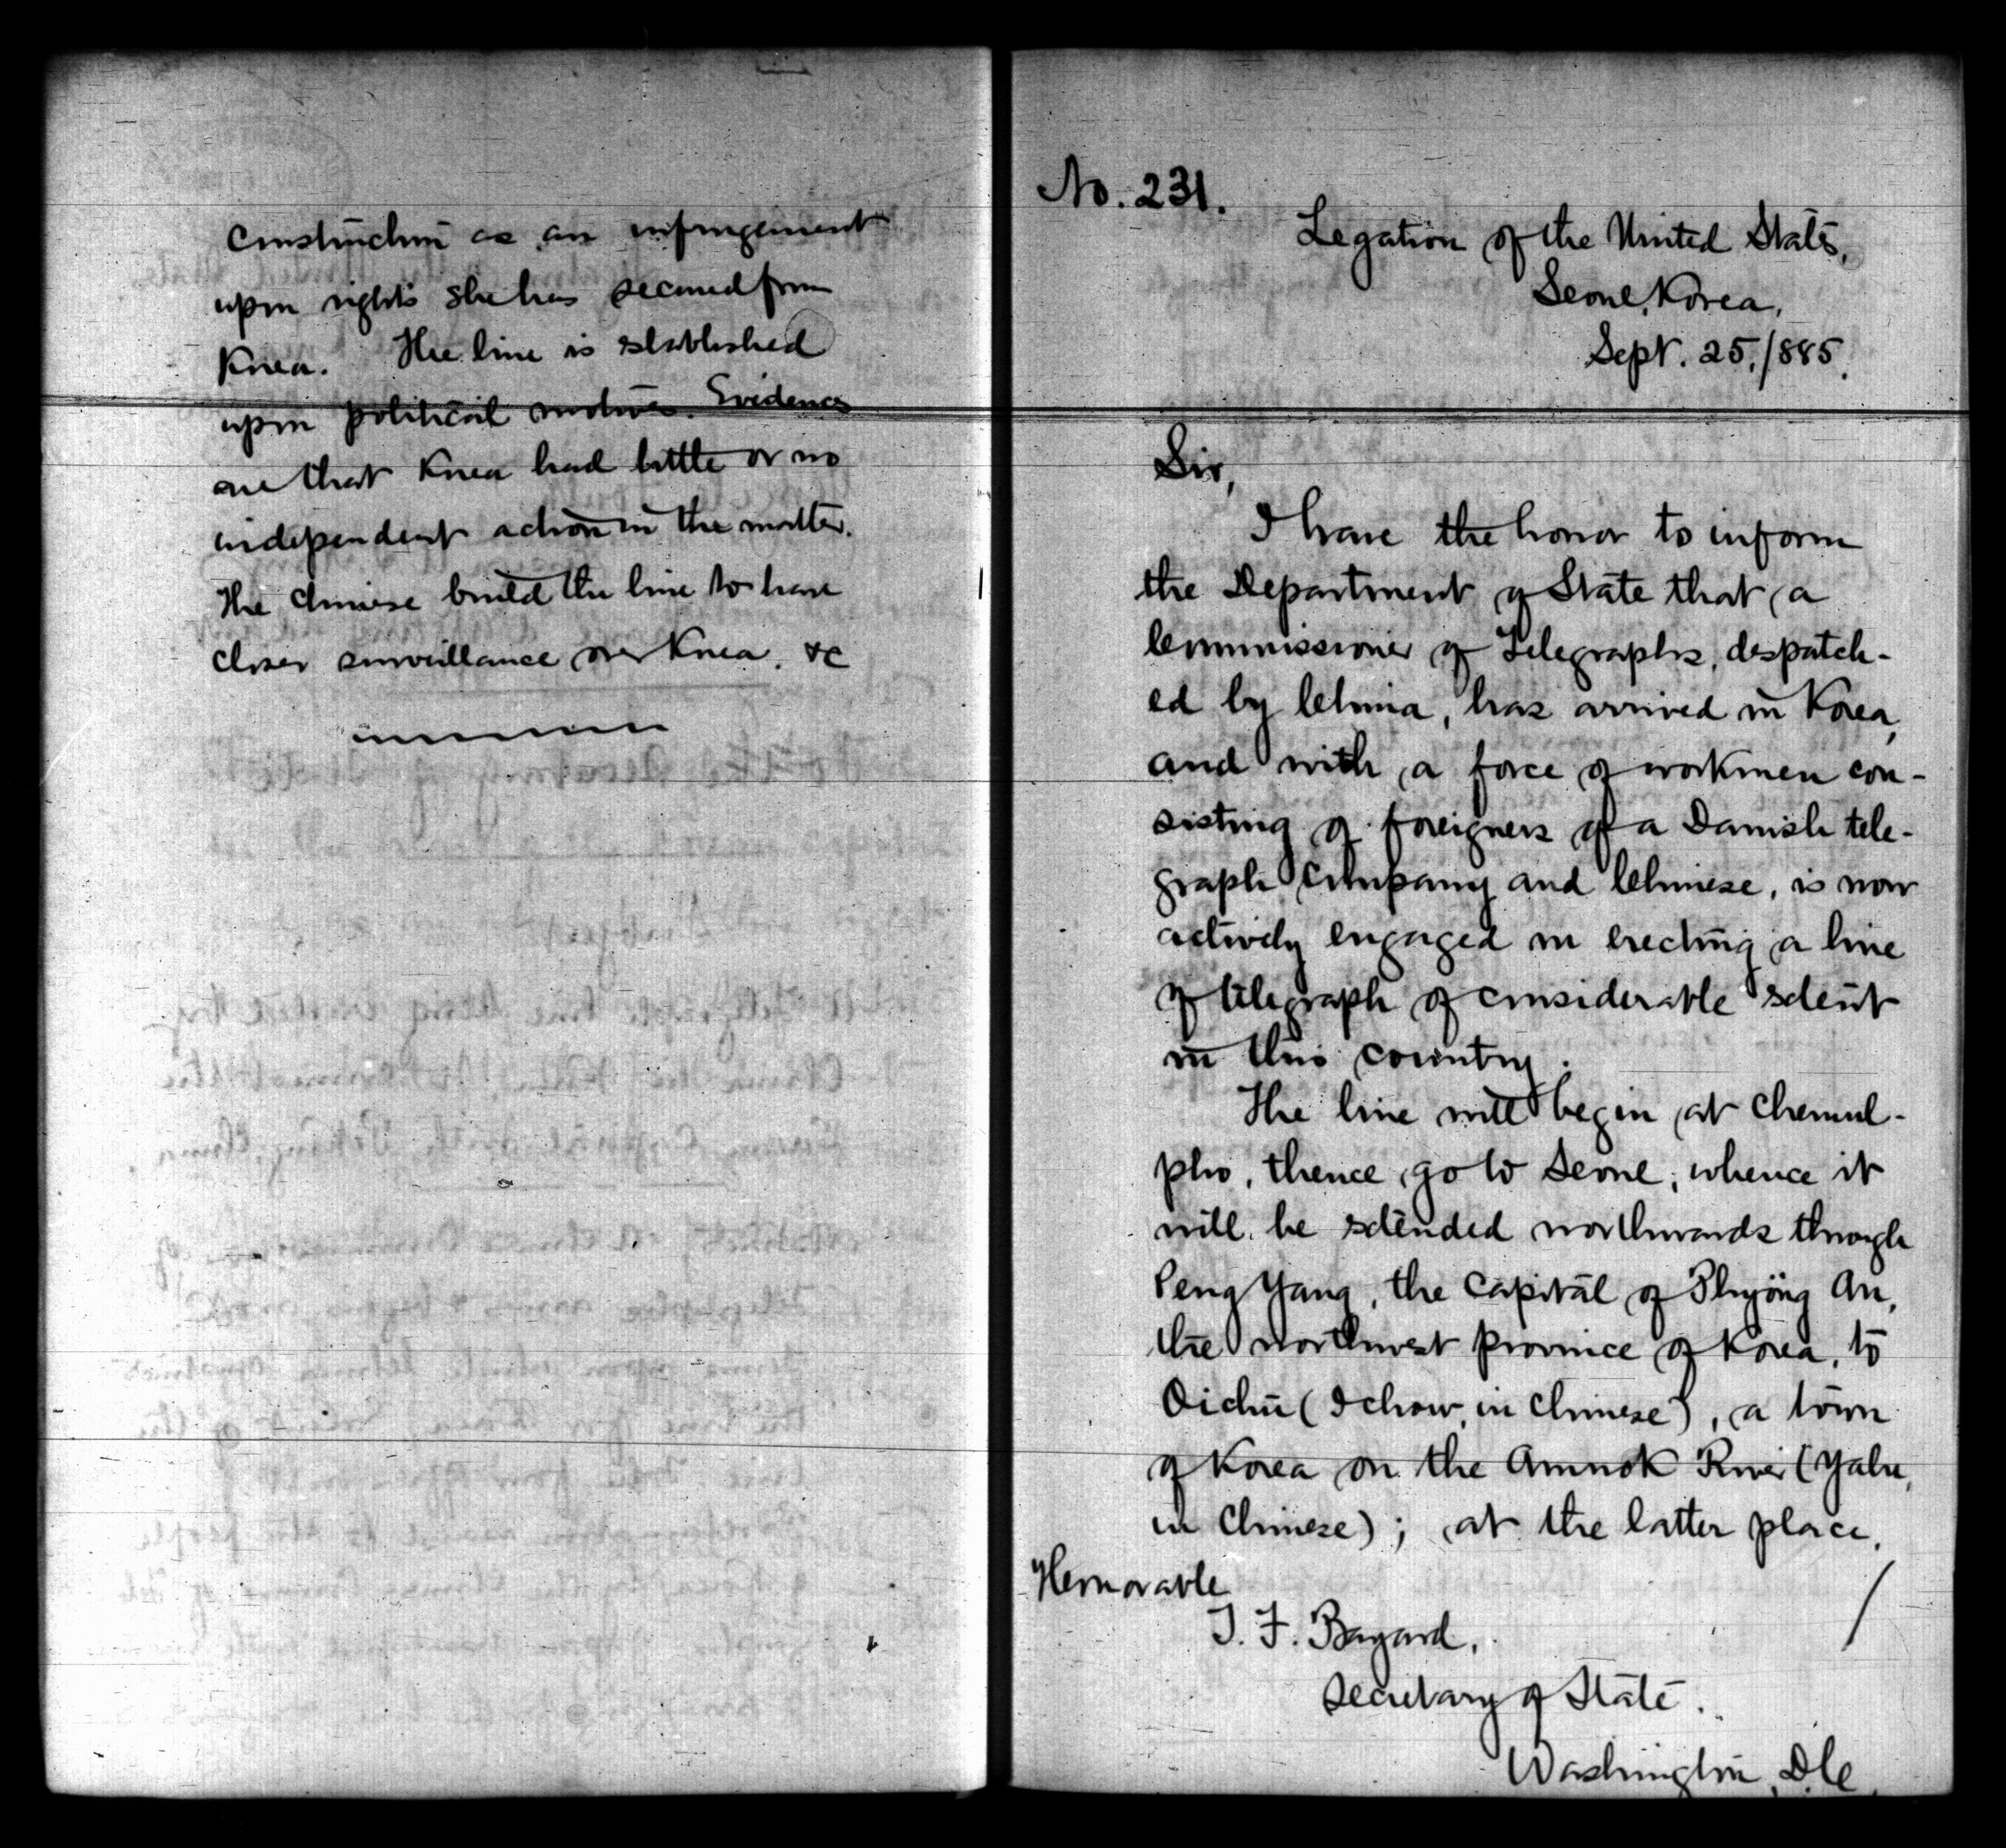 construction as an infringement
upon rights she has secured from
Korea. The line is established
upon political motives. Evidences
are that Korea had little or no
independent action in the matter.
The Chinese build the line to have
closer surveillance over Korea. &c
No. 231.
Legation of the United States,
Seoul, Korea,
Sept. 25, 1885.
Sir,
I have the honor to inform
the Department of State that a
Commissioner of Telegraphs, despatch-
ed by China, has arrived in Korea,
and with a force of workmen con-
sisting of foreigners of a Danish tele-
graph company and Chinese, is now
actively engaged in erecting a line
of telegraph of considerable extent
in this country.
The line will begin at Chemul-
pho, thence go to Seoul, whence it
will be extended northwards through
Peng Yang, the capital of Phyöng An,
the northwest province of Korea, to
Oichu (I chow, in Chinese), a town
of Korea on the Amnok River (Yalu,
in Chinese); at the latter place,
Honorable
T. F. Bayard,
Secretary of State.
Washington, D.C.